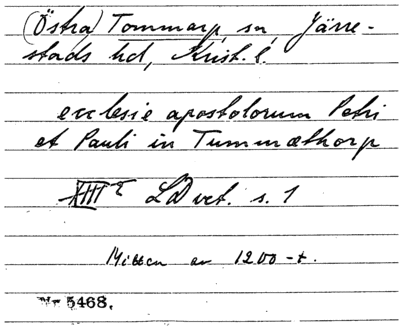 (Östra) Tommarp, sn, Järre-
stads hd, Krist. l.
ecclesie apostolorum Petri
et Pauli in Tummæthorp
XIII LD vet. s. 1
Mitten av 1200-t.
Nr 5468.